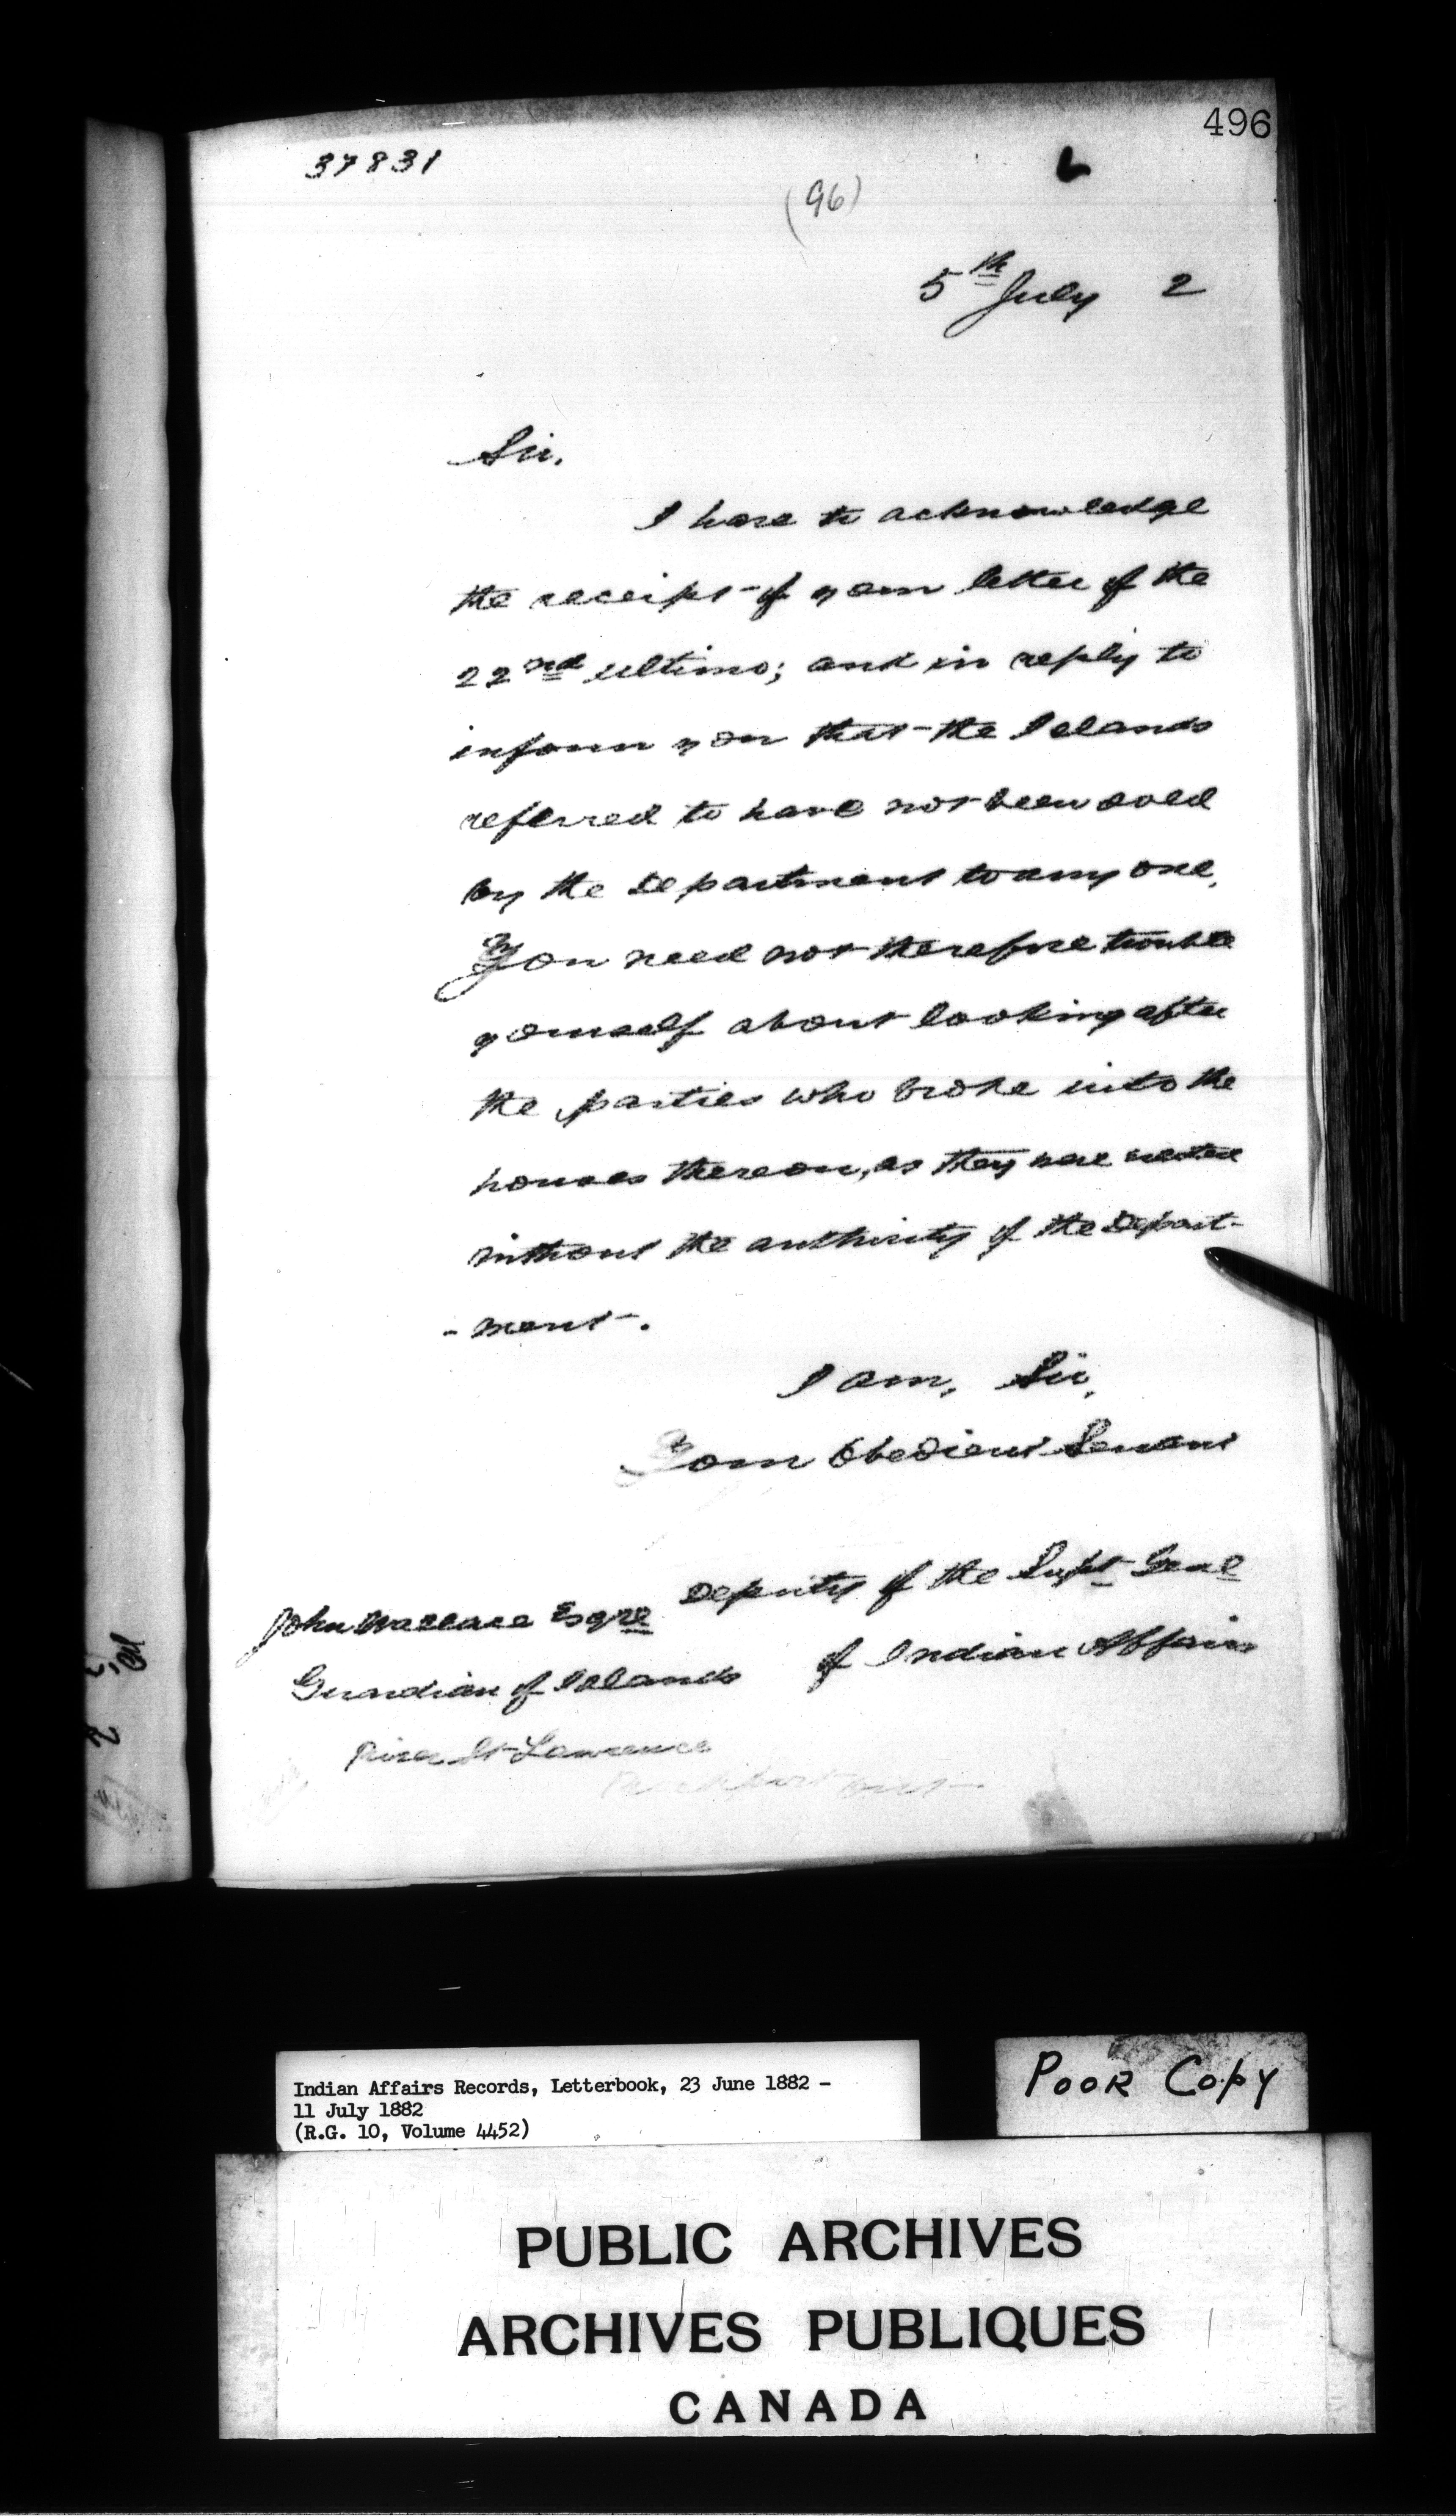 496
37831
L
(96)
5th July 2
Sir,
I have to acknowledge
the receipt of your letter of the
22nd ultimo; and in reply to
inform you that the Islands
referred to have not been sold
by the Department to any one.
You need not therefore trouble
yourself about looking after
the parties who broke into the
houses thereon, as they were erected
without the authority of the Depart-
-ment.
I am, Sir,
Your Obedient Servant
Deputy of the Supt Genl
of Indian Affairs
John Wallace Esqre
Guardian of Islands
River St Lawrence
Rockport Ont
Indian Affairs Records, Letterbook, 23 June 1882 -
11 July 1882
(R.G. 10, Volume 4452)
Poor Copy
PUBLIC ARCHIVES
ARCHIVES PUBLIQUES
CANADA